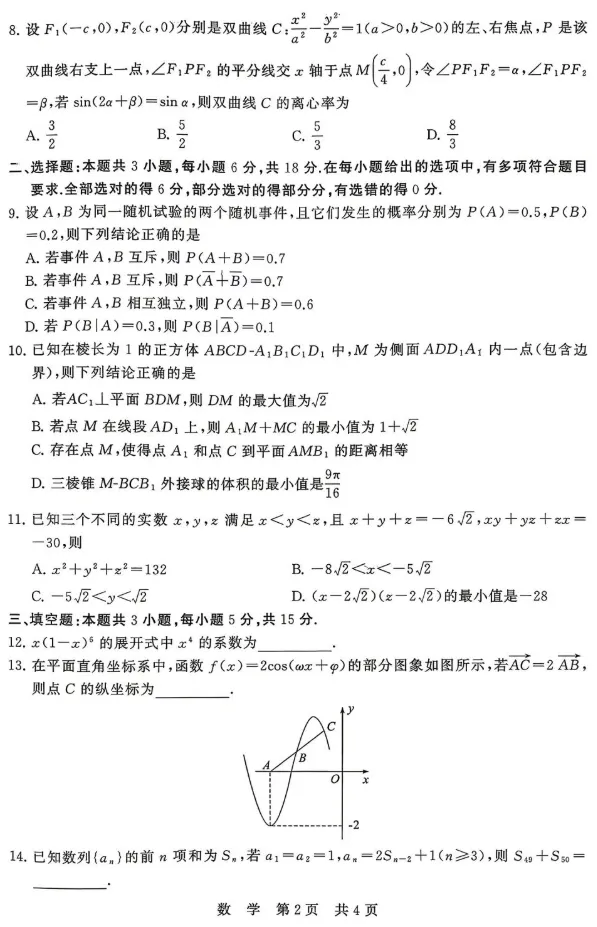 8. 设 F₁(−c,0),F₂(c,0)分别是双曲线 C:x²/a²−y²/b²=1(a>0,b>0)的左、右焦点,P 是该
双曲线右支上一点,∠F₁PF₂ 的平分线交 x 轴于点 M(c/4,0),令∠PF₁F₂=α,∠F₁PF₂
=β,若 sin(2α+β)=sin α,则双曲线 C 的离心率为
A. 3/2 B. 5/2 C. 5/3 D. 8/3
二、选择题:本题共 3 小题,每小题 6 分,共 18 分.在每小题给出的选项中,有多项符合题目
要求.全部选对的得 6 分,部分选对的得部分分,有选错的得 0 分.
9. 设 A,B 为同一随机试验的两个随机事件,且它们发生的概率分别为 P(A)=0.5,P(B)
=0.2,则下列结论正确的是
A. 若事件 A,B 互斥,则 P(A+B)=0.7
B. 若事件 A,B 互斥,则 P(A̅+B̅)=0.7
C. 若事件 A,B 相互独立,则 P(A+B)=0.6
D. 若 P(B|A)=0.3,则 P(B|A̅)=0.1
10. 已知在棱长为 1 的正方体 ABCD-A₁B₁C₁D₁ 中,M 为侧面 ADD₁A₁ 内一点(包含边
界),则下列结论正确的是
A. 若AC₁⊥平面 BDM,则 DM 的最大值为√2
B. 若点 M 在线段 AD₁ 上,则 A₁M+MC 的最小值为 1+√2
C. 存在点 M,使得点 A₁ 和点 C 到平面 AMB₁ 的距离相等
D. 三棱锥 M-BCB₁ 外接球的体积的最小值是9π/16
11. 已知三个不同的实数 x,y,z 满足 x<y<z,且 x+y+z=−6√2,xy+yz+zx=
−30,则
A. x²+y²+z²=132 B. −8√2<x<−5√2
C. −5√2<y<√2 D. (x−2√2)(z−2√2)的最小值是−28
三、填空题:本题共 3 小题,每小题 5 分,共 15 分.
12. x(1−x)⁶ 的展开式中 x⁴ 的系数为________.
13. 在平面直角坐标系中,函数 f(x)=2cos(ωx+φ)的部分图象如图所示,若AC→=2 AB→,
则点 C 的纵坐标为________.
y
C
B
A
O x
-2
14. 已知数列{aₙ}的前 n 项和为 Sₙ,若 a₁=a₂=1,aₙ=2Sₙ₋₂+1(n≥3),则 S₄₉+S₅₀=
________.
数 学 第2页 共4页